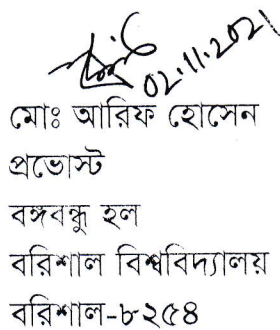 02.11.2021
মোঃ আরিফ হোসেন
প্রভোস্ট
বঙ্গবন্ধু হল
বরিশাল বিশ্ববিদ্যালয়
বরিশাল-৮২৫৪